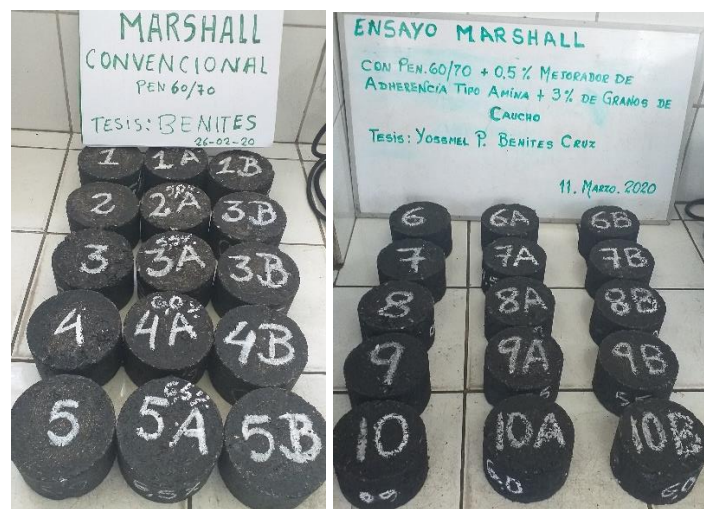 MARSHALL
CONVENCIONAL
PEN 60/70
TESIS: BENITES
26-02-20
1 1A 1B
2 2A 3B
3 3A 3B
5.5%
4 4A 4B
6.0%
5 5A 5B
ENSAYO MARSHALL
CON PEN.60/70 + 0,5 % MEJORADOR DE
ADHERENCIA TIPO AMINA + 3% DE GRANOS DE
CAUCHO
TESIS: YOSSMEL P. BENITES CRUZ
11. MARZO. 2020
6 6A 6B
7 7A 7B
8 8A 8B
9 9A 9B
10 10A 10B
6.0 6.0